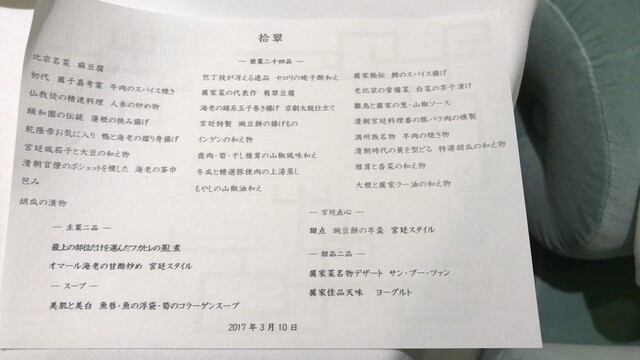 拾翠
― 前菜二十四品 ―
北京名菜 麻豆腐
初代 厲子嘉考案 牛肉のスパイス焼き
仏教徒の精進料理 人参の炒め物
頤和園の伝統 蓮根の挟み揚げ
乾隆帝お気に入り 鴨と海老の摺り身揚げ
宮廷風茄子と大豆の和え物
清朝官僚のポシェットを模した 海老の茶巾
包み
胡瓜の漬物
包丁技が冴える逸品 セロリの蝦子酢和え
厲家菜の代表作 翡翠豆腐
海老の錦糸玉子巻き揚げ 京劇太鼓仕立て
宮廷特製 豌豆餅の揚げもの
インゲンの和え物
鹿肉・筍・干し椎茸の山椒風味和え
冬瓜と精選豚挽肉の上湯蒸し
もやしの山椒油和え
厲家秘伝 鱈のスパイス揚げ
老北京の常備菜 白菜の芥子漬け
雛鳥と厲家の葱・山椒ソース
清朝宮廷料理番の豚バラ肉の燻製
満州族名物 羊肉の焼き物
清朝時代の簑を型どる 特選胡瓜の和え物
椎茸と香菜の和え物
大根と厲家ラー油の和え物
― 主菜二品 ―
最上の部位だけを選んだフカヒレの蒸し煮
オマール海老の甘酢炒め 宮廷スタイル
― スープ ―
美肌と美白 魚唇・魚の浮袋・筍のコラーゲンスープ
― 宮廷点心 ―
甜点 豌豆餅の羊羹 宮廷スタイル
― 甜品二品 ―
厲家菜名物デザート サン・ブー・ファン
厲家佳品天味 ヨーグルト
2017 年 3 月 10 日